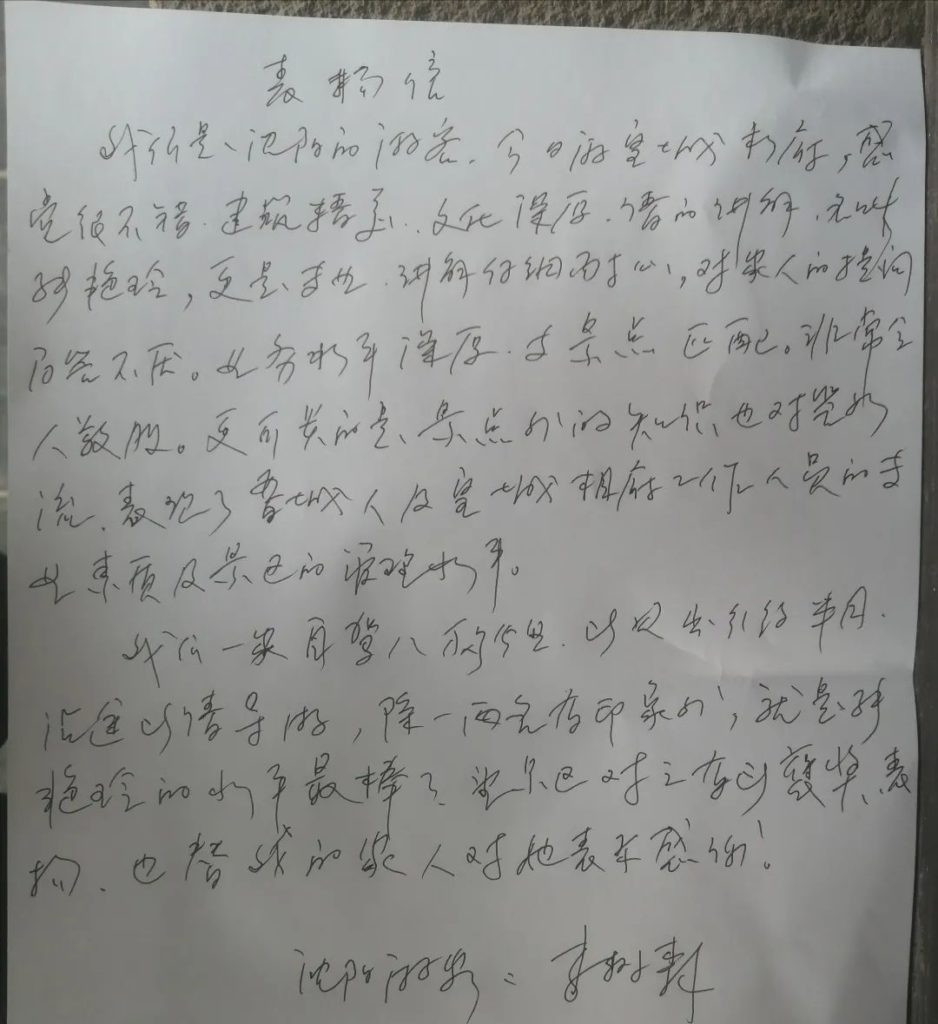 表扬信
我们是沈阳的游客.今日游皇城相府,感
觉很不错.建筑精美.文化深厚.请的讲解员叫
张艳玲,更是专业.讲解仔细而专心,对家人的提问
百答不厌。业务水平深厚.与景点匹配。非常令
人敬服。更可贵的是、景点外的知识也对答如
流.表现了晋城人及皇城相府工作人员的专
业素质及景区的管理水平。
我们一家自驾八千公里.出引约半月.
沿途所请导游,除一两名有印象外,就是张
艳玲的水平最棒了.望景区对之有所褒奖、表
扬、也替我的家人对她表示感谢!
沈阳游客: